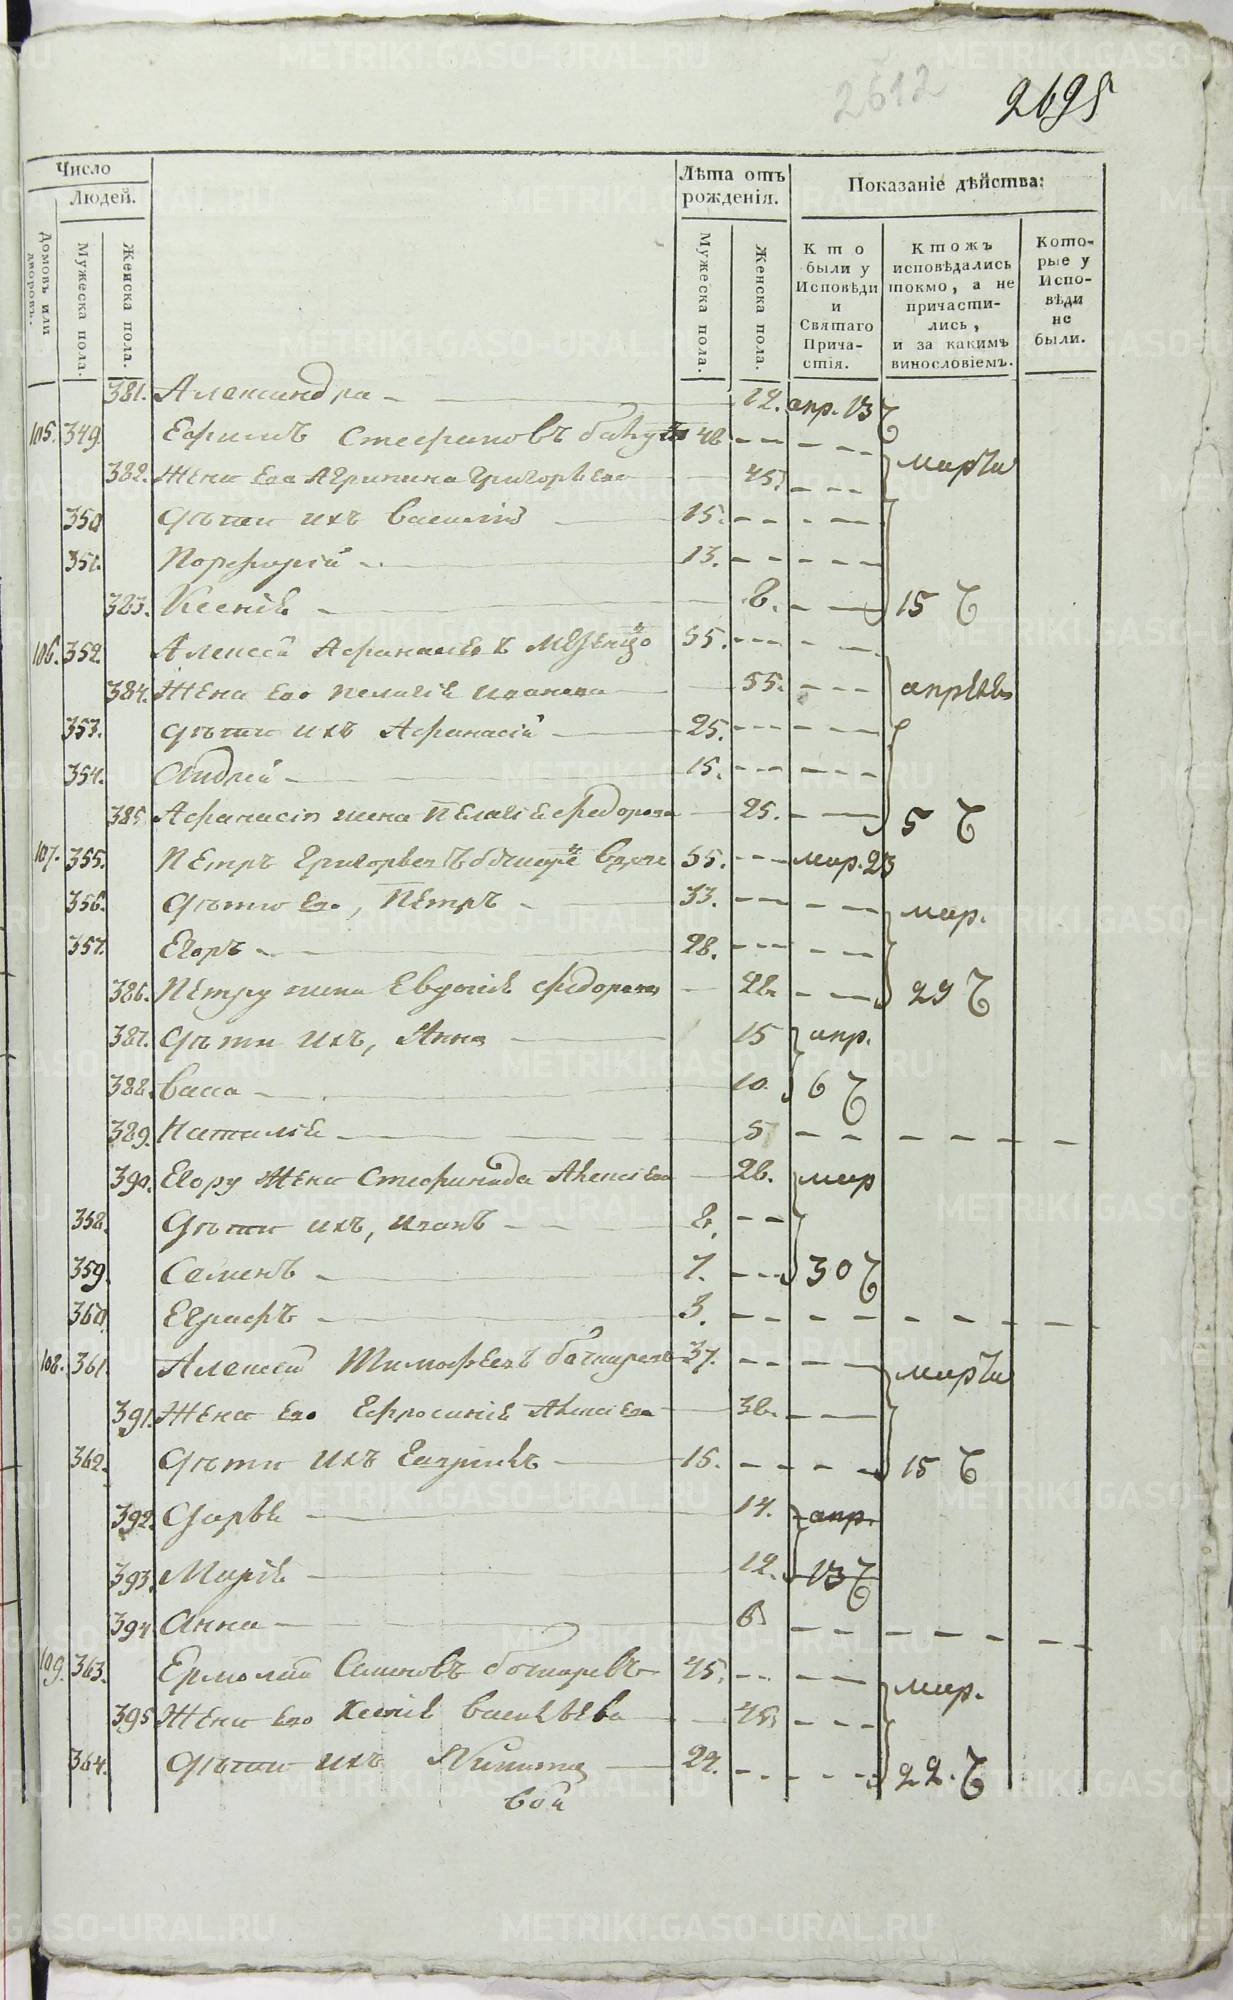 2612
2695
Число
Людей.
Домовъ или дворовъ.
Мужеска пола.
Женска пола.
Лѣта отъ рожденія.
Мужеска пола.
Женска пола.
Показаніе дѣйства:
Кто были у Исповѣди и Святаго Причастія.
Ктожъ исповѣдались токмо, а не причастились, и за какимъ винословіемъ.
Которые у Исповѣди не были.
381. Александра 12. апр. 13
105. 349 Ефимъ Стефановъ 48
382. Жена Его Агрипина Григорьева 45. марта
350 Дѣти ихъ Василій 15.
351. Порфирій 13.
383. Ксенія 8. 15
106. 352. Алексей Афанасьевъ 55.
384. Жена его Пелагія Иванова 55. апрѣля
353. Дѣти ихъ Афанасій 25.
354. Андрей 15.
385 Афанасія жена Пелагія Федорова 25. 5
107. 355. Петръ Григорьевъ вдовъ 55. мар. 23
356. Дѣти Его, Петръ 33. мар.
357. Егоръ 28.
386. Петру жена Евдокія Федорова 29
387. Дѣти Ихъ, Анна 15 апр.
388. Васса 10. 6
389. Наталья 5
390. Егору Жена Стефанида Алексеева 28. мар
358. Дѣти ихъ, Иванъ 8.
359. Семенъ 7. 30
360. Евграфъ 3.
108. 361. Алексей Тимофеевъ 37. марта
391. Жена Его Ефросинія Алексеева 38.
362. Дѣти Ихъ Гавріилъ 15. 15
392. Дарья 14. апр.
393. Марія 12. 13
394 Анна 6
109. 363. Ермолай Семеновъ Бочкаревъ 45. мар.
395 Жена Его Ксенія Васильева 45
364. Дѣти ихъ Никита 24. 22.
вой
METRIKI.GASO-URAL.RU